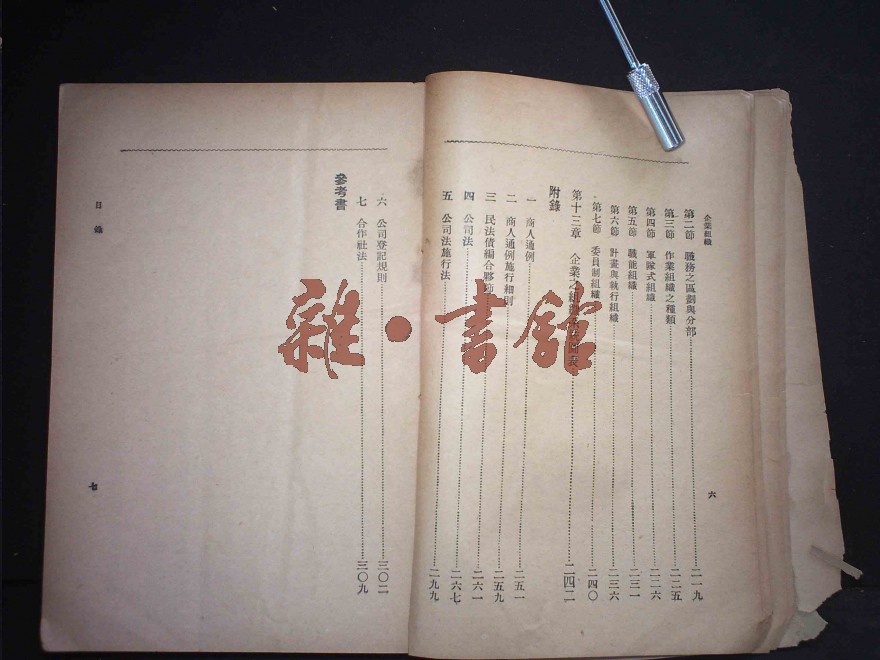 企業組織
第二節 職務之區劃與分部……二一九
第三節 作業組織之種類……二二五
第四節 軍隊式組織……二二六
第五節 職能組織……二三一
第六節 計畫與執行組織……二三六
第七節 委員制組織……二四〇
第十三章 企業之組織……二四二
附錄
一 商人通例……二五一
二 商人通例施行細則……二五九
三 民法債編合夥節……二六一
四 公司法……二六七
五 公司法施行法……二九九
六
六 公司登記規則……三〇二
七 合作社法……三〇九
參考書
目錄
七
雜·書館